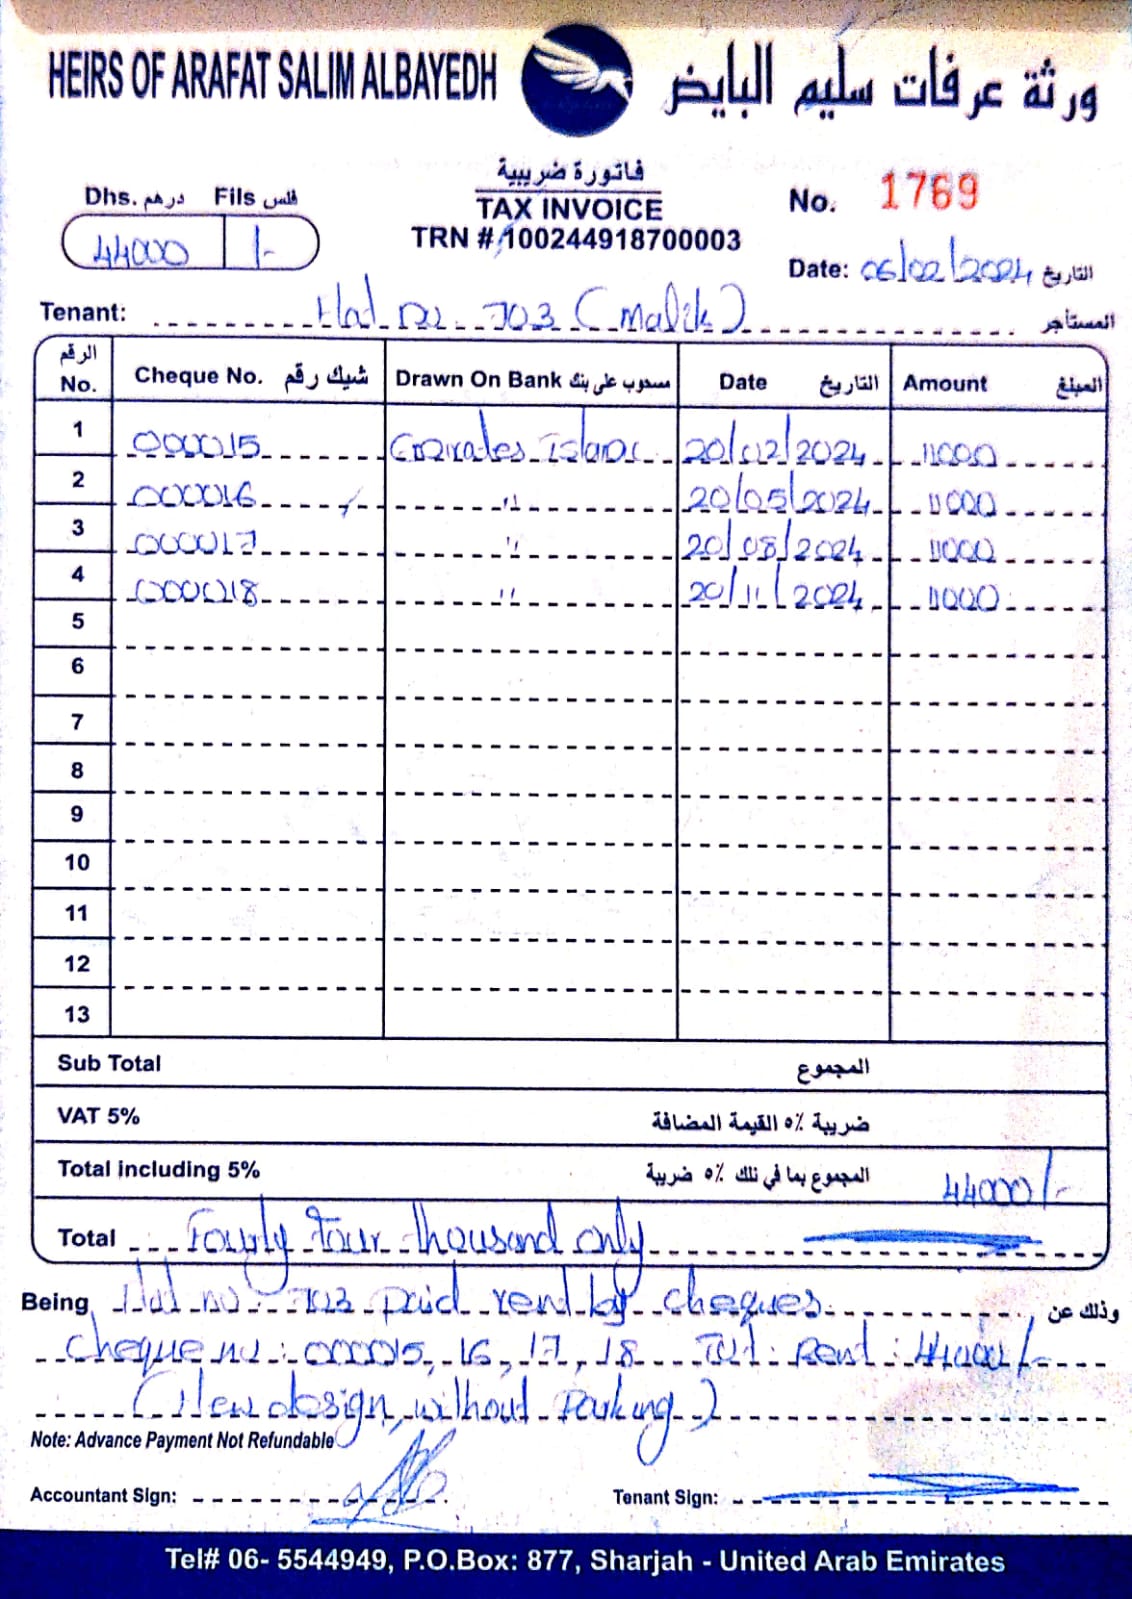 HEIRS OF ARAFAT SALIM ALBAYEDH ورثة عرفات سليم البايض
فاتورة ضريبية
TAX INVOICE
TRN # 100244918700003
Dhs. درهم Fils فلس
44000 /-
No. 1769
Date: 06/02/2024 التاريخ
Tenant: Flat no. 703 (Malik) المستأجر
الرقم No. Cheque No. شيك رقم Drawn On Bank مسحوب على بنك Date التاريخ Amount المبلغ
1 000015 Emirates Islamic 20/02/2024 11000
2 000016 " 20/05/2024 11000
3 000017 " 20/08/2024 11000
4 000018 " 20/11/2024 11000
5
6
7
8
9
10
11
12
13
Sub Total المجموع
VAT 5% ضريبة ٥٪ القيمة المضافة
Total including 5% المجموع بما في تلك ٥٪ ضريبة 44000/-
Total Fourty four thousand only
Being Flat no. 703 paid rent by cheques وذلك عن
Cheque no: 000015, 16, 17, 18 Tot: Rent: 44000/-
(New design, without Parking)
Note: Advance Payment Not Refundable
Accountant Sign: Tenant Sign:
Tel# 06- 5544949, P.O.Box: 877, Sharjah - United Arab Emirates